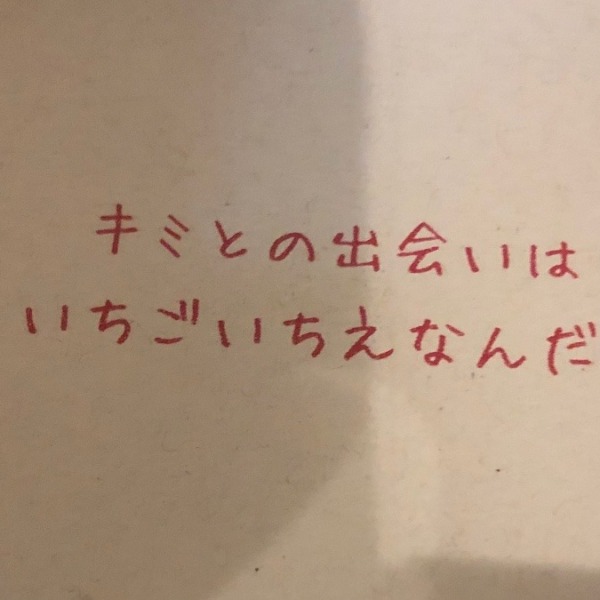 キミとの出会いは
いちごいちえなんだ